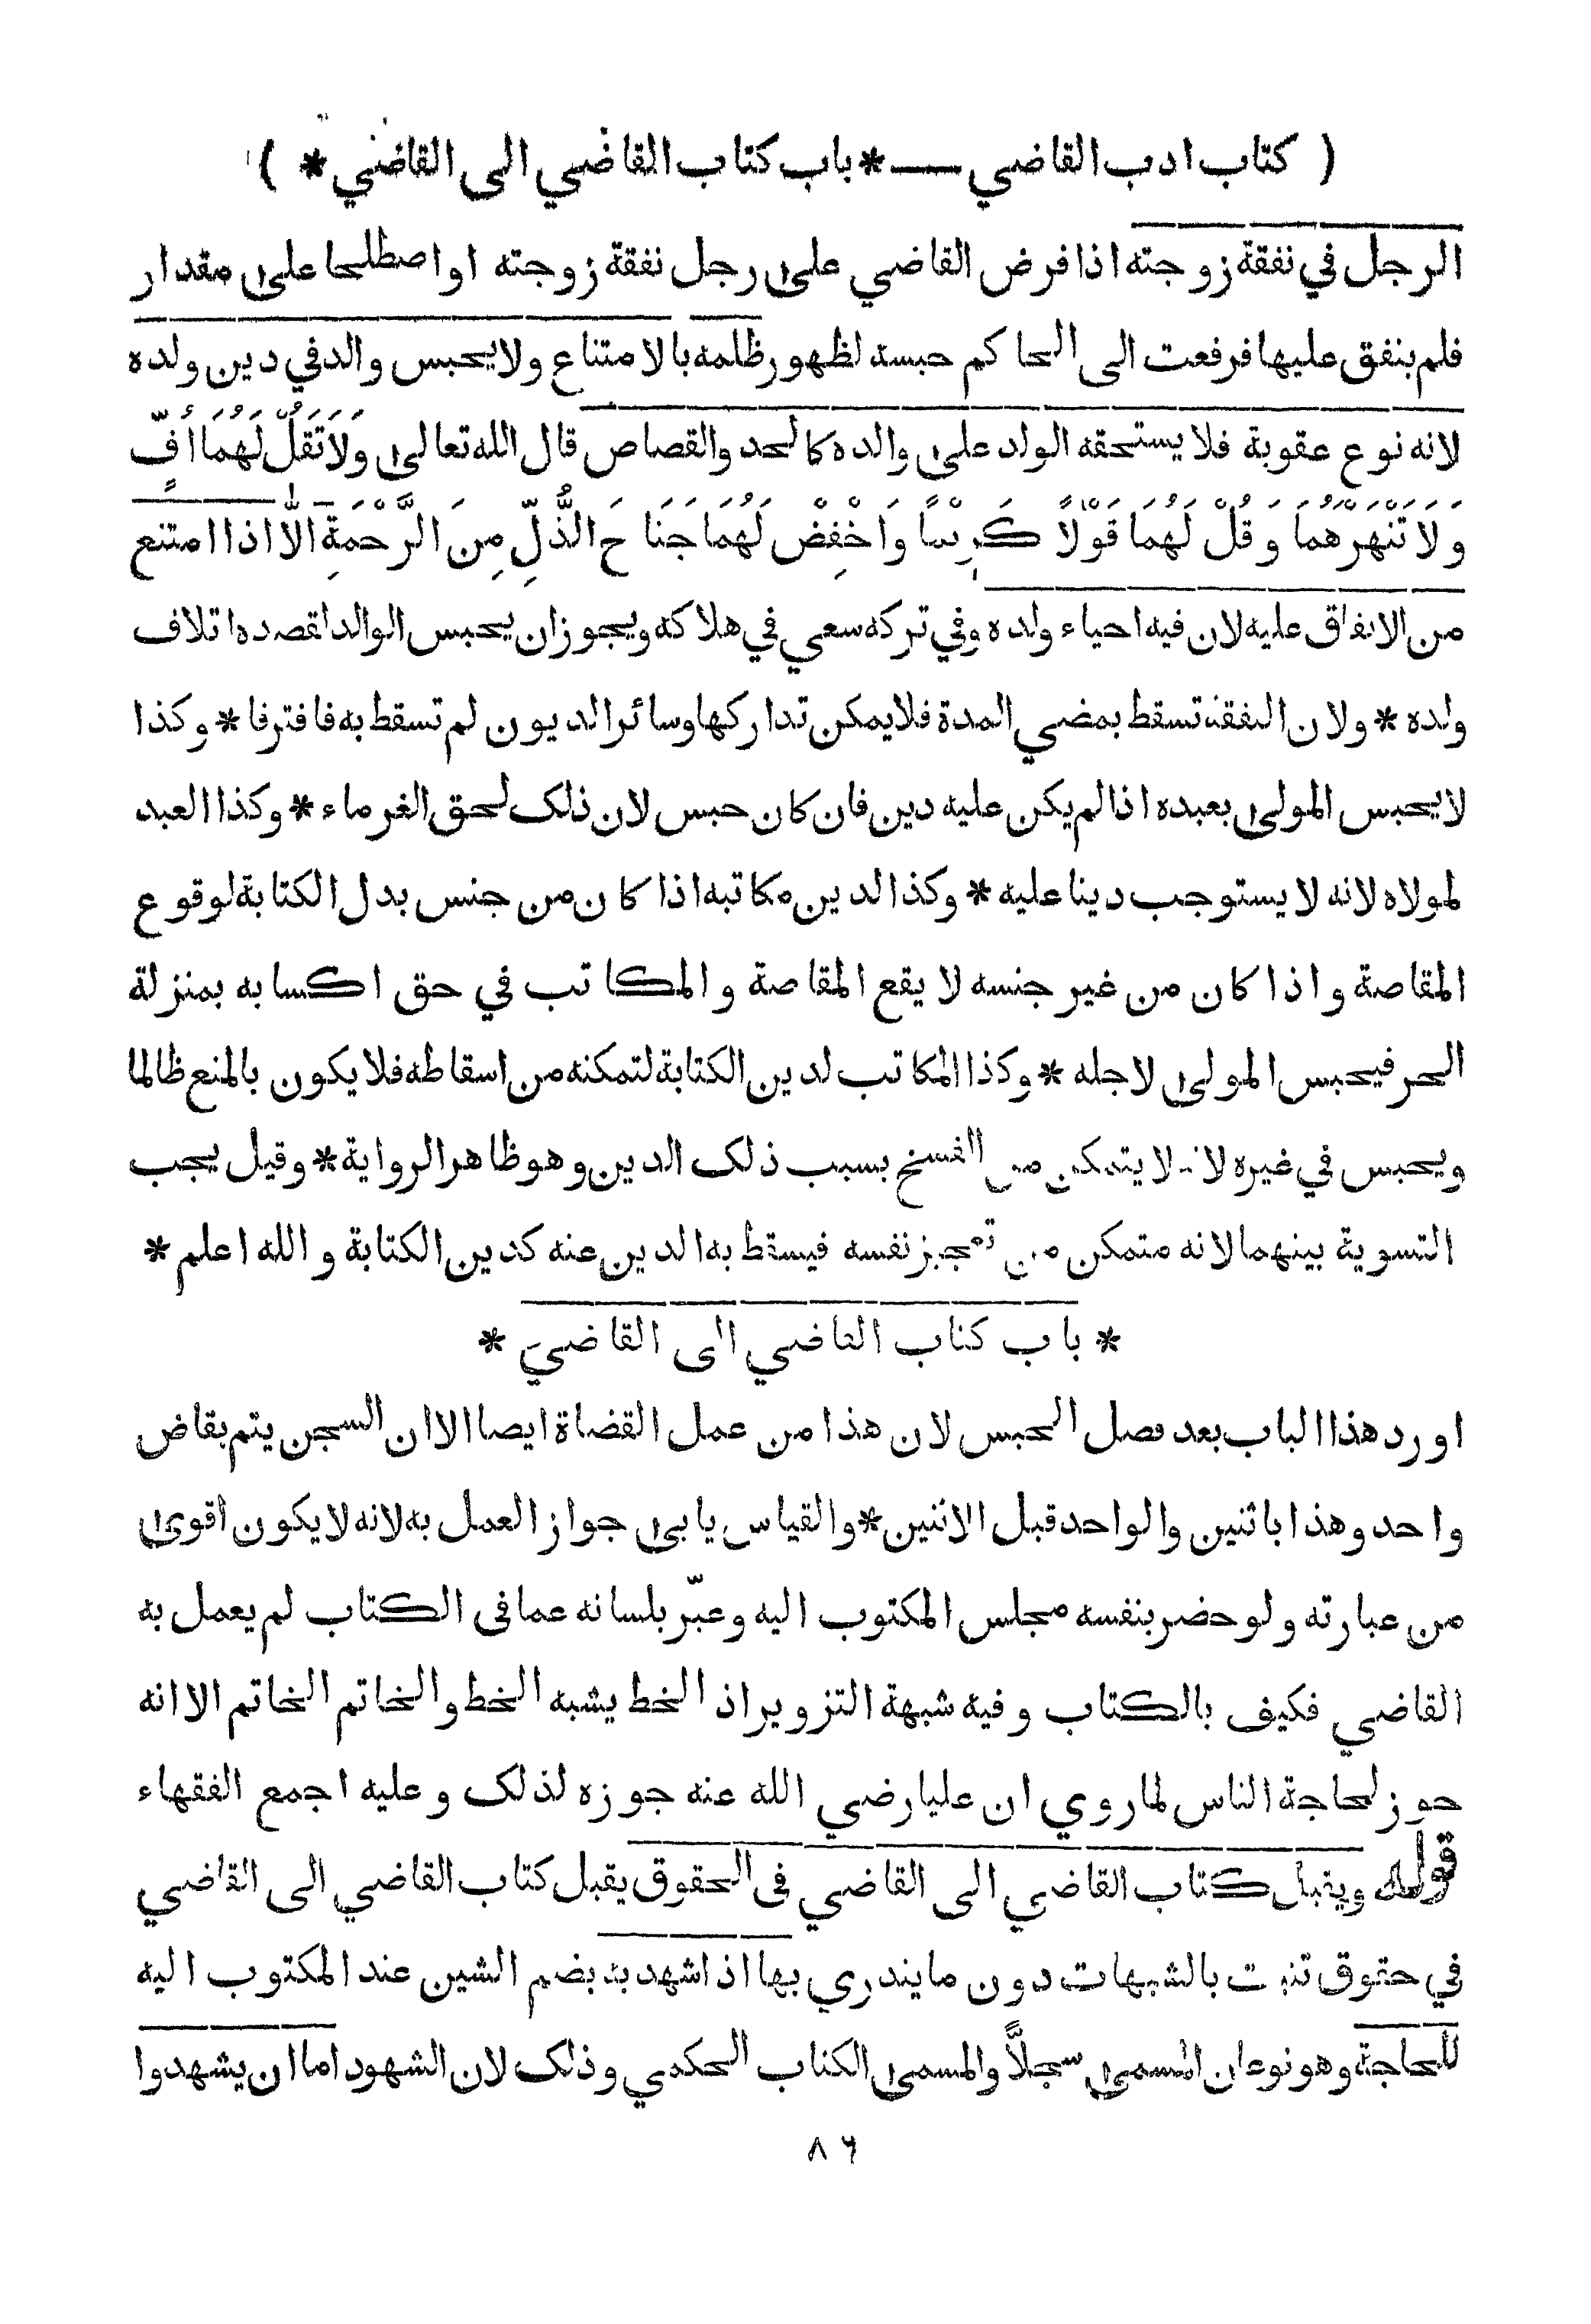 ( كتاب ادب القاضي — * باب كتاب القاضي الى القاضي * )
الرجل في نفقة زوجته اذا فرض القاضي على رجل نفقة زوجته او اصطلحا على مقدار
فلم ينفق عليها فرفعت الى الحاكم حبسه لظهور ظلمه بالامتناع ولا يحبس والد في دين ولده
لانه نوع عقوبة فلا يستحقه الولد على والده كالحد والقصاص قال الله تعالى وَلَا تَقُلْ لَهُمَا اُفٍّ
وَلَا تَنْهَرْهُمَا وَقُلْ لَهُمَا قَوْلًا كَرِيْمًا وَاخْفِضْ لَهُمَا جَنَاحَ الذُّلِّ مِنَ الرَّحْمَةِ الّا اذا امتنع
من الانفاق عليه لان فيه احياء ولده وفي تركه سعي في هلاكه ويجوز ان يحبس الوالد لقصده اتلاف
ولده * ولان النفقة تسقط بمضي المدة فلا يمكن تداركها وسائر الديون لم تسقط به فافترقا * وكذا
لا يحبس المولى بعبده اذا لم يكن عليه دين فان كان حبس لان ذلك لحق الغرماء * وكذا العبد
لمولاه لانه لا يستوجب دينا عليه * وكذا لدين مكاتبه اذا كان من جنس بدل الكتابة لوقوع
المقاصة واذا كان من غير جنسه لا يقع المقاصة والمكاتب في حق اكسابه بمنزلة
الحر فيحبس المولى لاجله * وكذا المكاتب لدين الكتابة لتمكنه من اسقاطه فلا يكون بالمنع ظالما
ويحبس في غيره لانه لا يتمكن من الفسخ بسبب ذلك الدين وهو ظاهر الرواية * وقيل يجب
التسوية بينهما لانه متمكن من تعجيز نفسه فيسقط به الدين عنه كدين الكتابة والله اعلم *
* باب كتاب القاضي الى القاضي *
اورد هذا الباب بعد فصل الحبس لان هذا من عمل القضاة ايضا الا ان السجن يتم بقاض
واحد وهذا باثنين والواحد قبل الاثنين * والقياس يابى جواز العمل به لانه لا يكون أقوى
من عبارته ولو حضر بنفسه مجلس المكتوب اليه وعبّر بلسانه عما فى الكتاب لم يعمل به
القاضي فكيف بالكتاب وفيه شبهة التزوير اذ الخط يشبه الخط والخاتم الخاتم الا انه
جوز لحاجة الناس لما روي ان عليا رضي الله عنه جوزه لذلك وعليه اجمع الفقهاء
قوله ويقبل كتاب القاضي الى القاضي فى الحقوق يقبل كتاب القاضي الى القاضي
في حقوق تثبت بالشبهات دون ما يندري بها اذا شهد به بضم الشين عند المكتوب اليه
للحاجة وهو نوعان المسمى سجلاًّ والمسمى الكتاب الحكمي وذلك لان الشهود اما ان يشهدوا
٨٦